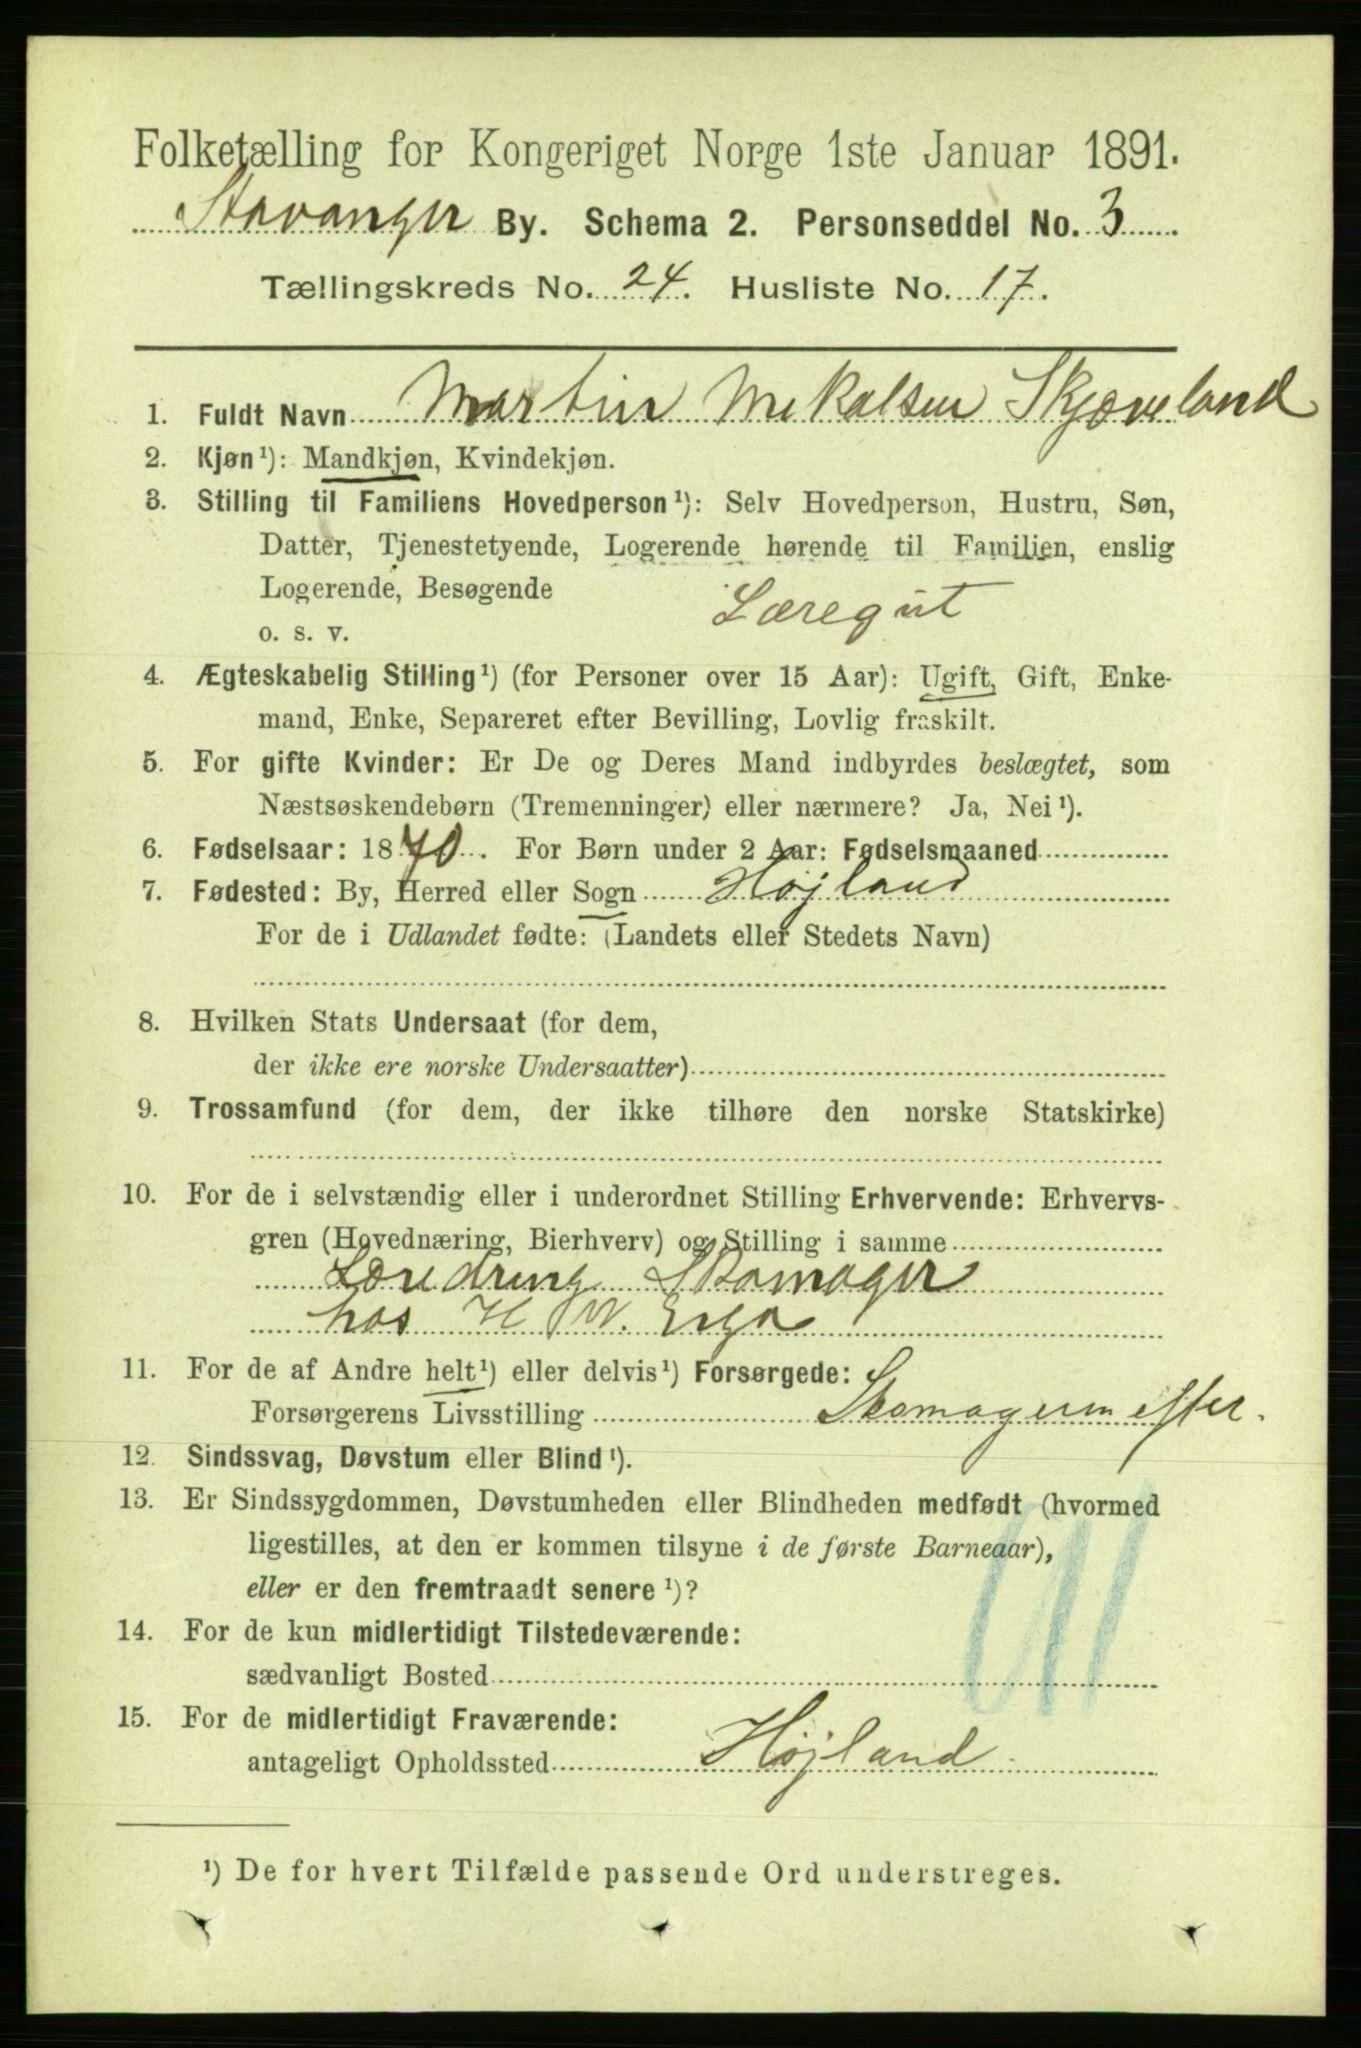 Folketælling for Kongeriget Norge 1ste Januar 1891.
Stavanger By. Schema 2. Personseddel No. 3
Tællingskreds No. 24. Husliste No. 17.
1. Fuldt Navn Martin Mikalsen Skjæveland
2. Kjøn¹): Mandkjøn, Kvindekjøn.
3. Stilling til Familiens Hovedperson¹): Selv Hovedperson, Hustru, Søn,
Datter, Tjenestetyende, Logerende hørende til Familien, enslig
Logerende, Besøgende
o. s. v. Læregut
4. Ægteskabelig Stilling¹) (for Personer over 15 Aar): Ugift, Gift, Enke-
mand, Enke, Separeret efter Bevilling, Lovlig fraskilt.
5. For gifte Kvinder: Er De og Deres Mand indbyrdes beslægtet, som
Næstsøskendebørn (Tremenninger) eller nærmere? Ja, Nei¹).
6. Fødselsaar: 1870. For Børn under 2 Aar: Fødselsmaaned
7. Fødested: By, Herred eller Sogn Højland
For de i Udlandet fødte: (Landets eller Stedets Navn)
8. Hvilken Stats Undersaat (for dem,
der ikke ere norske Undersaatter)
9. Trossamfund (for dem, der ikke tilhøre den norske Statskirke)
10. For de i selvstændig eller i underordnet Stilling Erhvervende: Erhvervs-
gren (Hovednæring, Bierhverv) og Stilling i samme
Læredreng Skomager
hos H W. Erga
11. For de af Andre helt¹) eller delvis¹) Forsørgede:
Forsørgerens Livsstilling Skomagermester.
12. Sindssvag, Døvstum eller Blind¹).
13. Er Sindssygdommen, Døvstumheden eller Blindheden medfødt (hvormed
ligestilles, at den er kommen tilsyne i de første Barneaar),
eller er den fremtraadt senere¹)?
14. For de kun midlertidigt Tilstedeværende:
sædvanligt Bosted
15. For de midlertidigt Fraværende:
antageligt Opholdssted Højland.
¹) De for hvert Tilfælde passende Ord understreges.